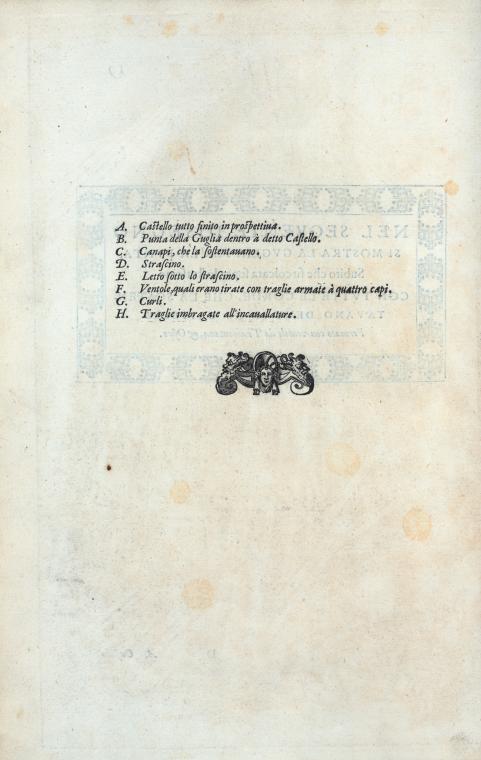 A. Castello tutto finito in prospettiua.
B. Punta della Guglia dentro à detto Castello.
C. Canapi, che la sostentauano.
D. Strascino.
E. Letto sotto lo strascino.
F. Ventole, quali erano tirate con traglie armate à quattro capi.
G. Curli.
H. Traglie imbragate all'incauallature.